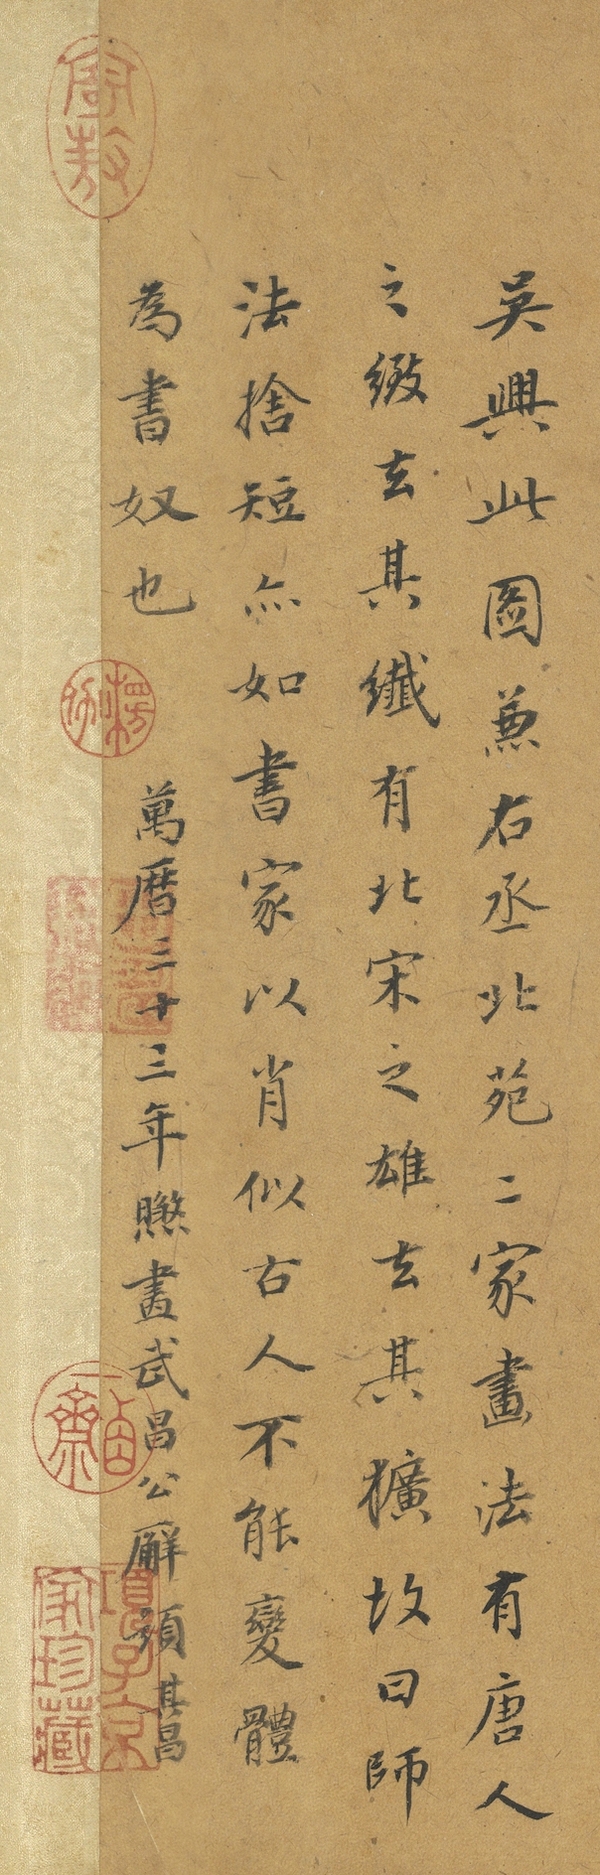 吳興此圖兼右丞北苑二家畫法有唐人
之緻去其纖有北宋之雄去其獷故曰師
法捨短亦如書家以肖似古人不能變體
為書奴也
萬曆三十三年䁾畫武昌公廨題其昌
項子京
家珍藏